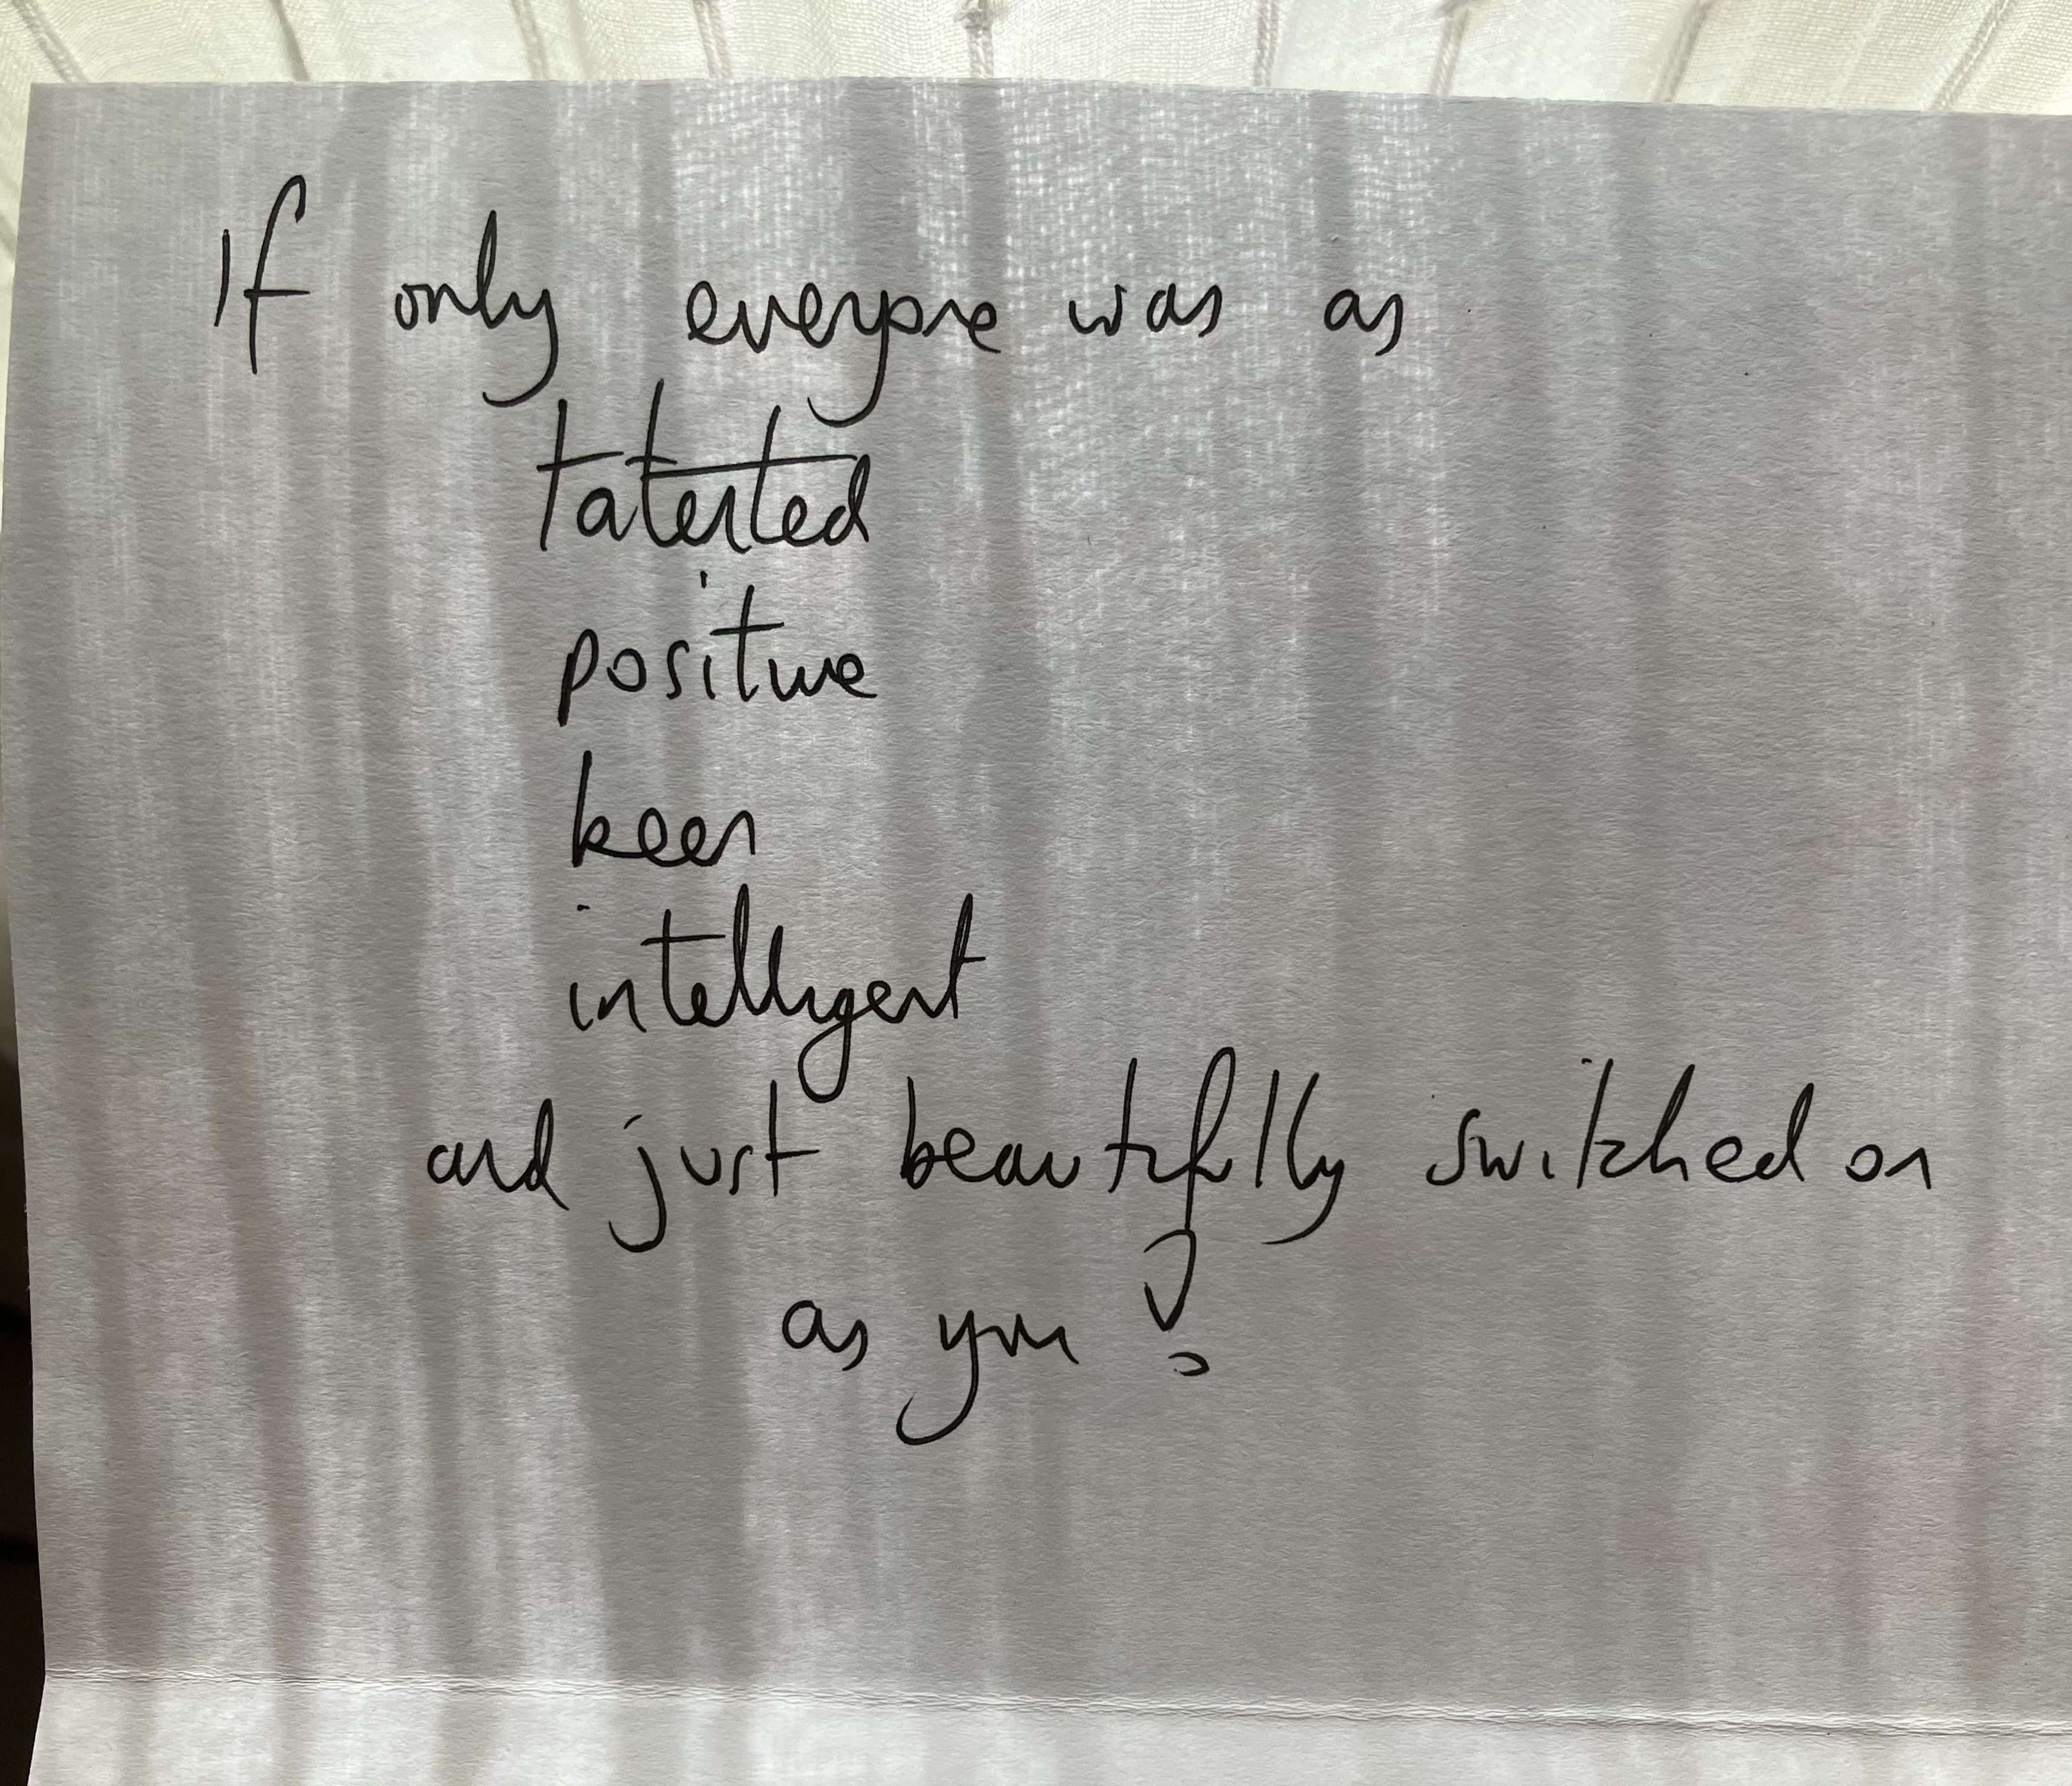 If only everyone was as
talented
positive
keen
intelligent
and just beautifully switched on
as you!